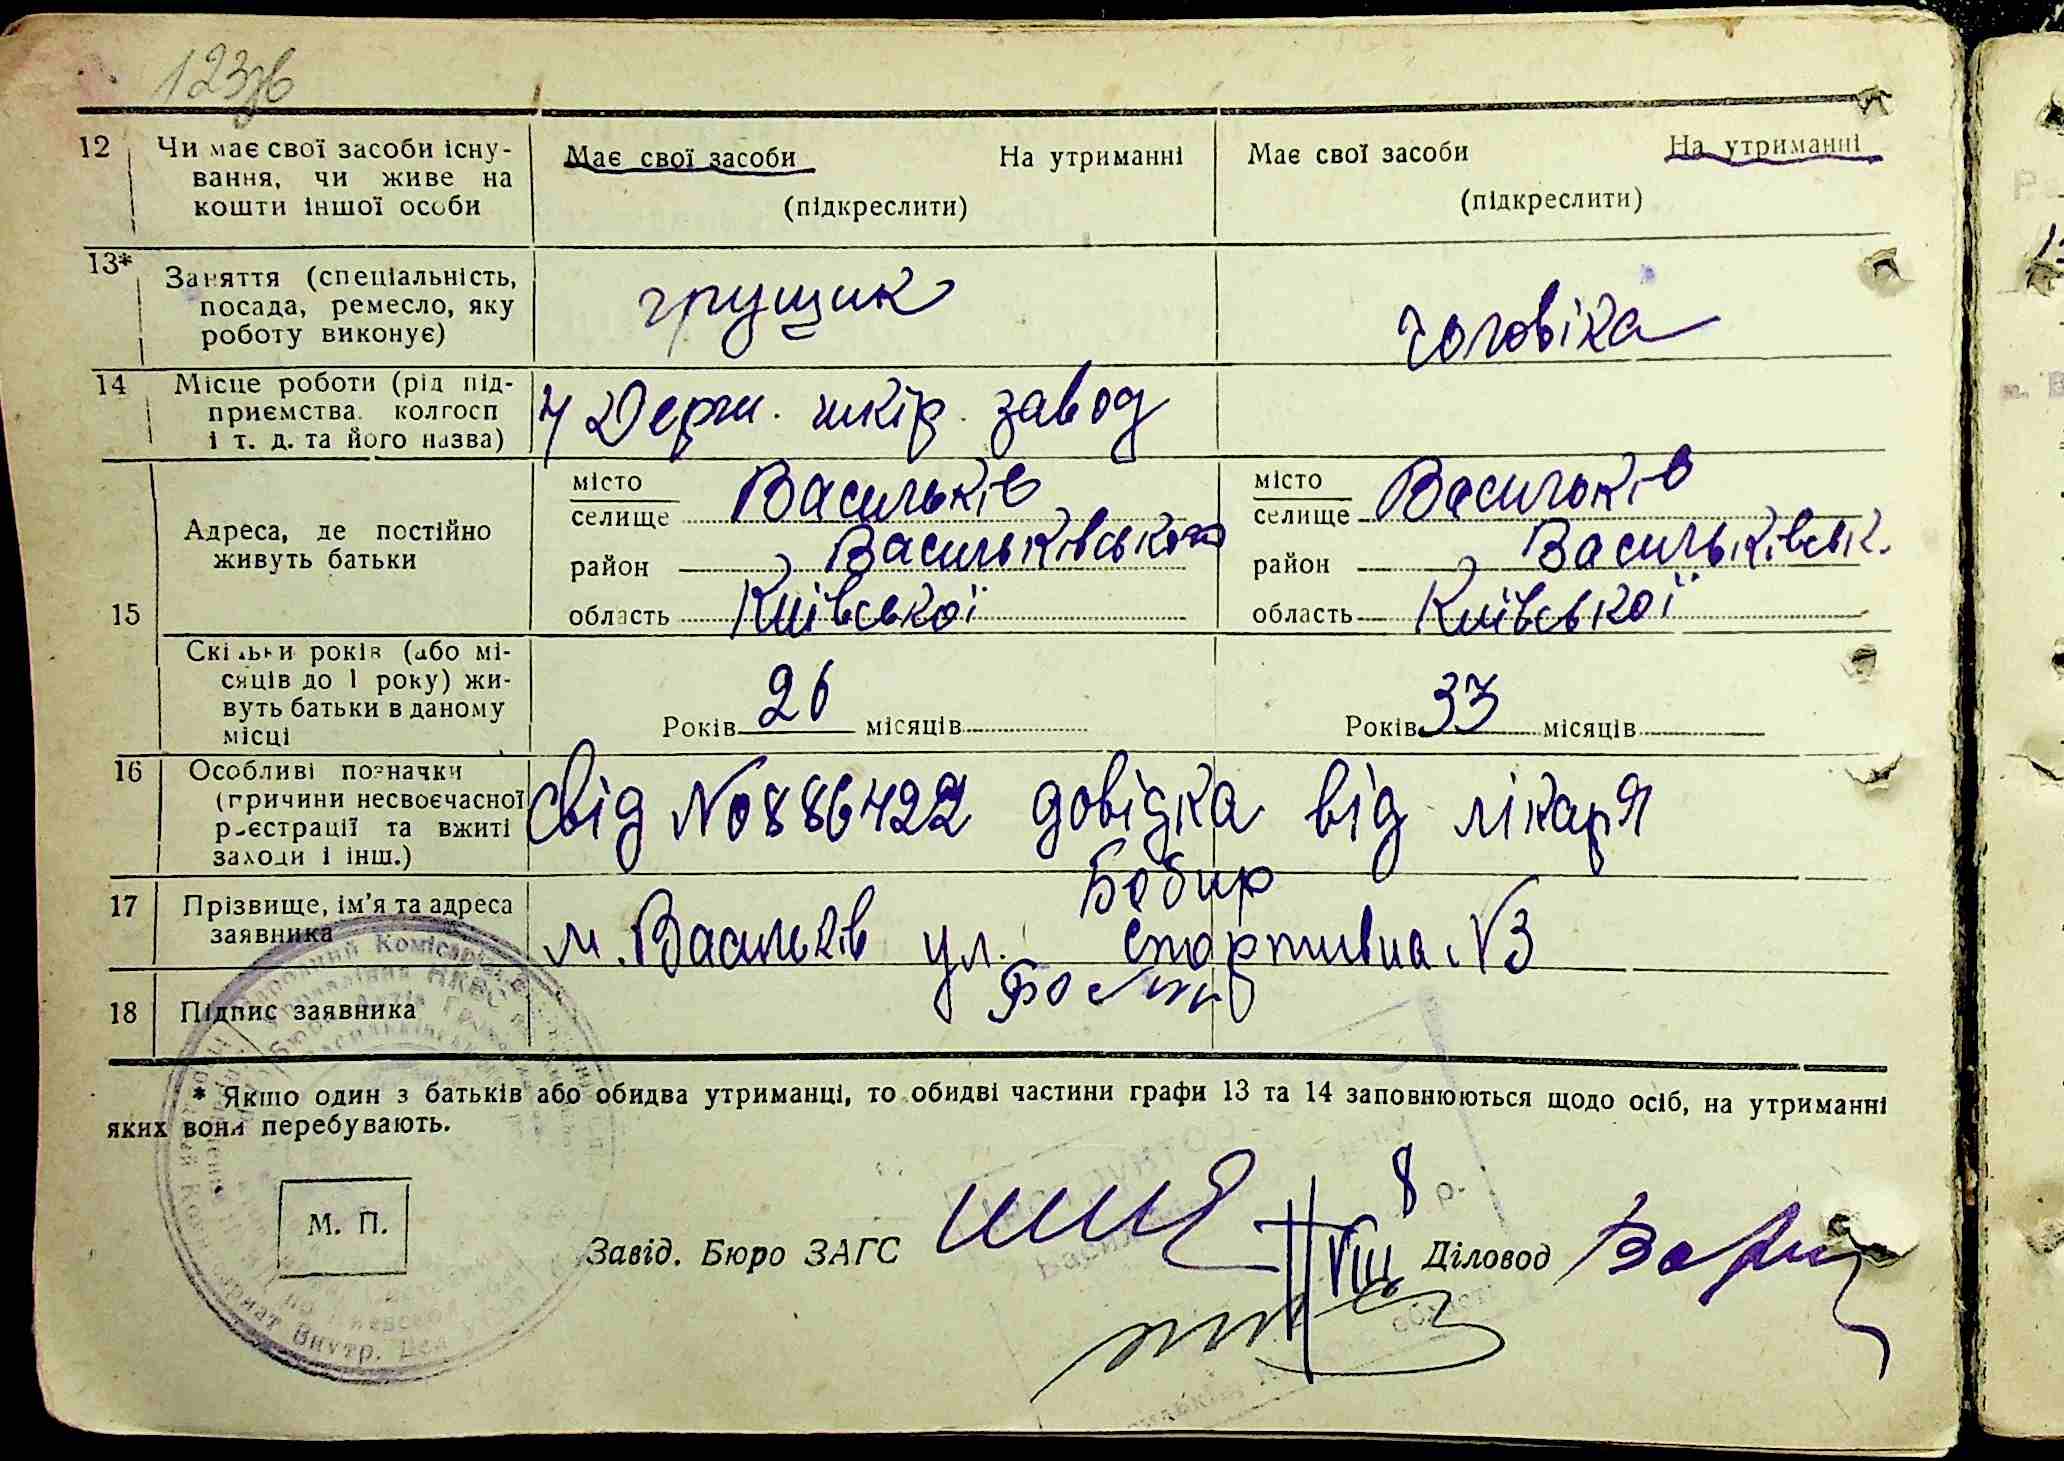 123зв
12 Чи має свої засоби існу- Має свої засоби На утриманні Має свої засоби На утриманні
вання, чи живе на
кошти іншої особи (підкреслити) (підкреслити)
13* Заняття (спеціальність, грущик чоловіка
посада, ремесло, яку
роботу виконує)
14 Місце роботи (рід під- 4 Держ. шкір. завод
приємства. колгосп
і т. д. та його назва)
15 Адреса, де постійно
живуть батьки
місто
селище Васильків
район Васильківського
область Київської
місто
селище Васильків
район Васильківськ.
область Київської
Скільки років (або мі-
сяців до 1 року) жи-
вуть батьки в даному
місці
Років 26 місяців Років 33 місяців
16 Особливі позначки
(причини несвоєчасної
реєстрації та вжиті
заходи і інш.)
свід №0886422 довідка від лікаря
17 Прізвище, ім'я та адреса
заявника
Бобир
м. Васильків ул. спортивна №3
18 Підпис заявника
* Якщо один з батьків або обидва утриманці, то обидві частини графи 13 та 14 заповнюються щодо осіб, на утриманні
яких вони перебувають.
М. П.
Завід. Бюро ЗАГС 8 VIII Діловод